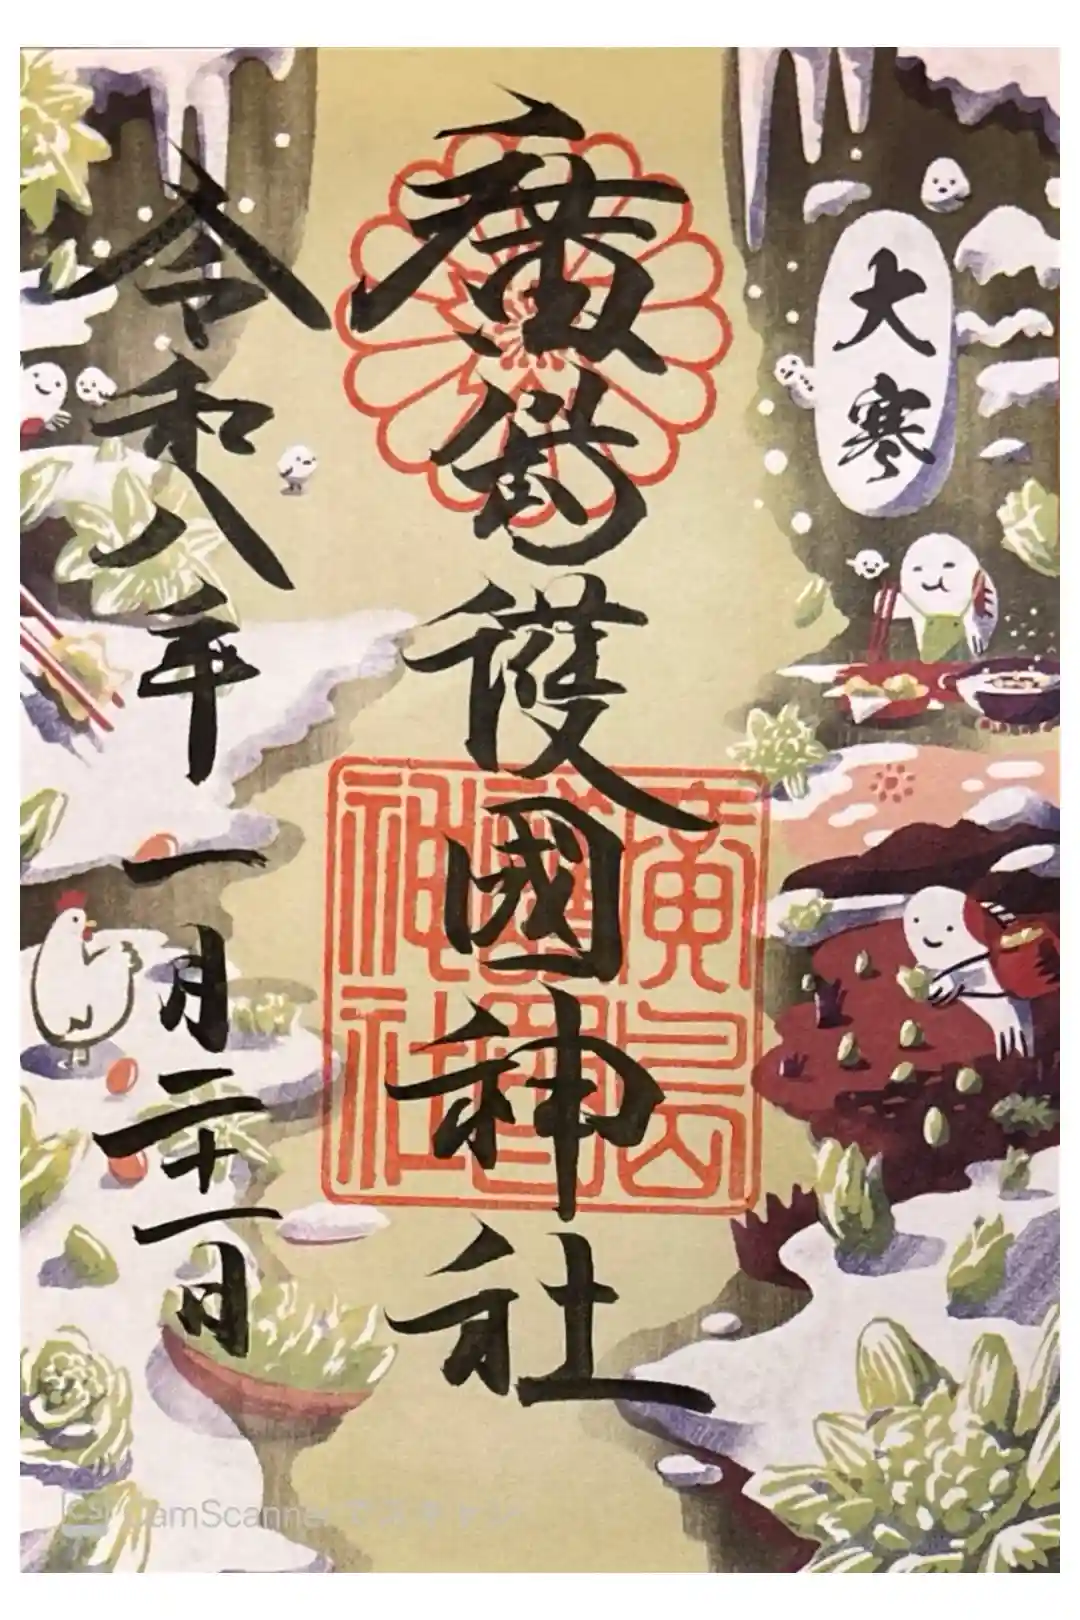 大寒
廣島護國神社
廣島
護國
神社
令和八年一月二十一日
CamScannerでスキャン